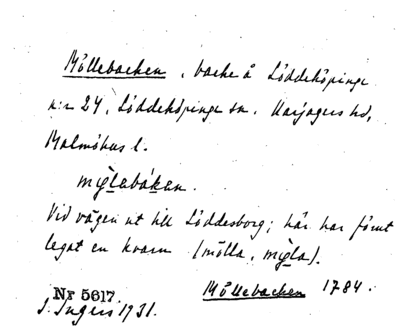 Möllebacken, backe å Löddeköpinge
n:r 24, Löddeköpinge sn. Harjagers hd,
Malmöhus l.
mỳlebáken.
Vid vägen ut till Löddesborg; här har förut
legat en kvarn (mölla, mỳla).
Möllebacken 1784.
Nr 5617.
I. Ingers 1931.